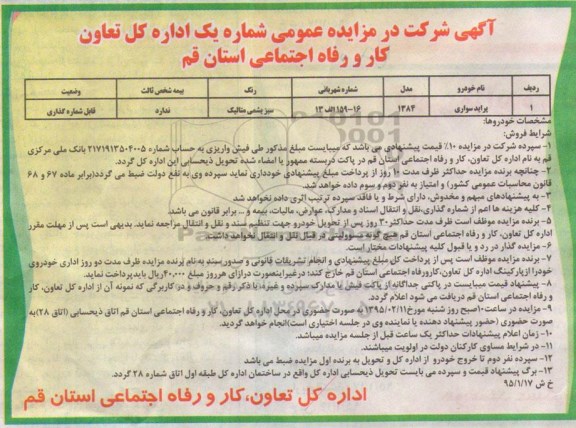 آگهی شرکت در مزایده عمومی شماره یک اداره کل تعاون
کار و رفاه اجتماعی استان قم
ردیف نام خودرو مدل شماره شهربانی رنگ بیمه شخص ثالث وضعیت
۱ پراید سواری ۱۳۸۴ ۱۶-۱۵۹الف۱۳ سبز یشمی متالیک ندارد قابل شماره گذاری
مشخصات خودروها:
شرایط فروش:
۱- سپرده شرکت در مزایده ۱۰٪ قیمت پیشنهادی می باشد که میبایست مبلغ مذکور طی فیش واریزی به حساب شماره ۲۱۷۱۹۱۳۵۰۴۰۰۵ بانک ملی مرکزی
قم به نام اداره کل تعاون، کار و رفاه اجتماعی استان قم در پاکت دربسته ممهور یا امضاء شده تحویل ذیحسابی این اداره کل گردد.
۲- چنانچه برنده مزایده حداکثر ظرف مدت ۱۰ روز از پرداخت مبلغ پیشنهادی خودداری نماید سپرده وی به نفع دولت ضبط می گردد(برابر ماده ۶۷ و ۶۸
قانون محاسبات عمومی کشور) و امتیاز به نفر دوم و سوم داده خواهد شد.
۳- به پیشنهادهای مبهم و مخدوش، دارای شرط و یا فاقد سپرده ترتیب اثری داده نخواهد شد
۴- کلیه هزینه ها اعم از شماره گذاری،نقل و انتقال اسناد و مدارک، عوارض، مالیات، بیمه و ... برابر قانون می باشد.
۵- برنده مزایده موظف است ظرف مدت حداکثر ۲۰ روز پس از تحویل خودرو جهت تنظیم سند و نقل و انتقال مراجعه نماید. بدیهی است پس از مهلت مقرر
اداره کل تعاون، کار و رفاه اجتماعی استان قم هیچ گونه مسوولیتی در قبال نقل و انتقال نخواهد داشت.
۶- مزایده گذار در رد و یا قبول کلیه پیشنهادات مختار است.
۷- برنده مزایده موظف است پس از پرداخت کل مبلغ پیشنهادی و انجام تشریفات قانونی و صدور سند به نام برنده مزایده ظرف مدت دو روز اداری خودروی
خود را از پارکینگ اداره کل تعاون،کارورفاه اجتماعی استان قم خارج کند؛ درغیراینصورت درازای هرروز مبلغ ۴۰۰۰۰ریال بایدپرداخت نماید.
۸- پیشنهاد قیمت میبایست در پاکتی جداگانه از پاکت فیش یا مدارک سپرده و غیره، با ذکر رقم و حروف و در کاربرگی که نمونه آن از اداره کل تعاون، کار
و رفاه اجتماعی استان قم دریافت می شود اعلام گردد.
۹- مزایده در ساعت ۱۰صبح روز شنبه مورخ۱۳۹۵/۰۲/۱۱به صورت حضوری در محل اداره کل تعاون، کار و رفاه اجتماعی استان قم اتاق ذیحسابی (اتاق ۲۸)به
صورت حضوری (حضور پیشنهاد دهنده یا نماینده وی در جلسه اختیاری است)انجام خواهد گردید.
۱۰- زمان اعلام پیشنهادات حداکثر یک ساعت قبل از جلسه مزایده میباشد.
۱۱- در شرایط مساوی کارکنان دولت در اولویت میباشند.
۱۲- سپرده نفر دوم تا خروج خودرو از اداره کل و تحویل به برنده اول مزایده ضبط می باشد
۱۳- برگ پیشنهاد قیمت و سپرده می بایست تحویل ذیحسابی اداره کل واقع در ساختمان اداره کل طبقه اول اتاق شماره ۲۸ گردد.
خ ش ۹۵/۱/۱۷
اداره کل تعاون،کار و رفاه اجتماعی استان قم